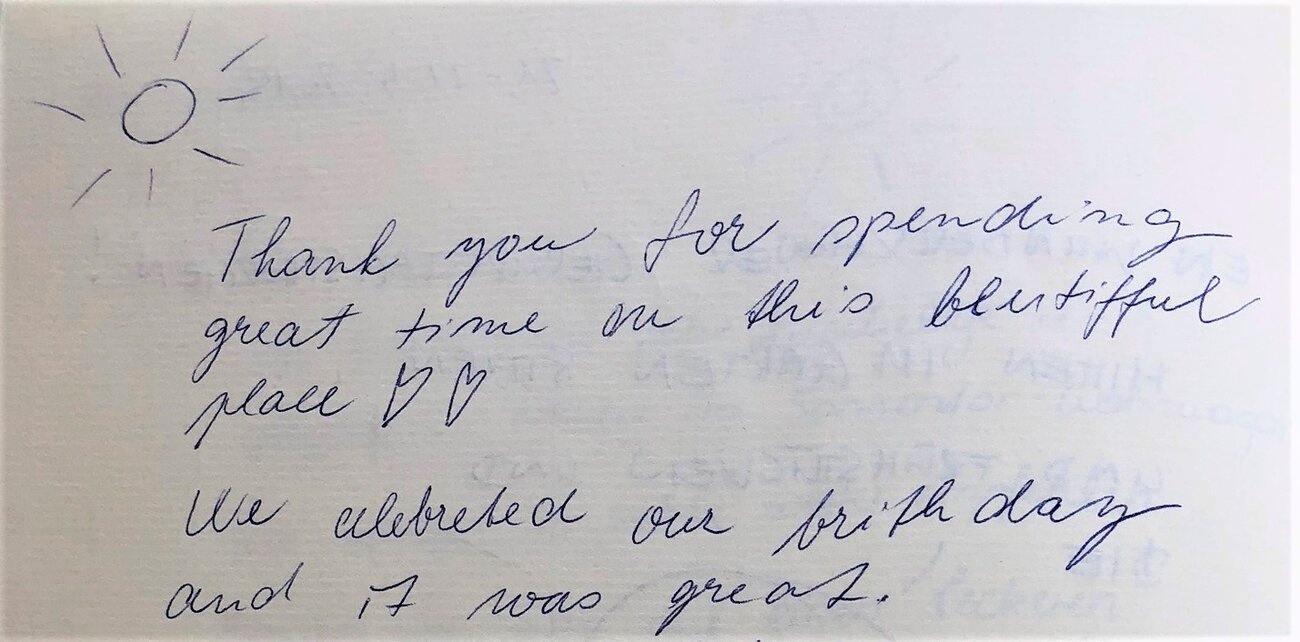 Thank you for spending
great time in this bleutifful
place ♡ ♡
We celebreted our brithday
and it was great.